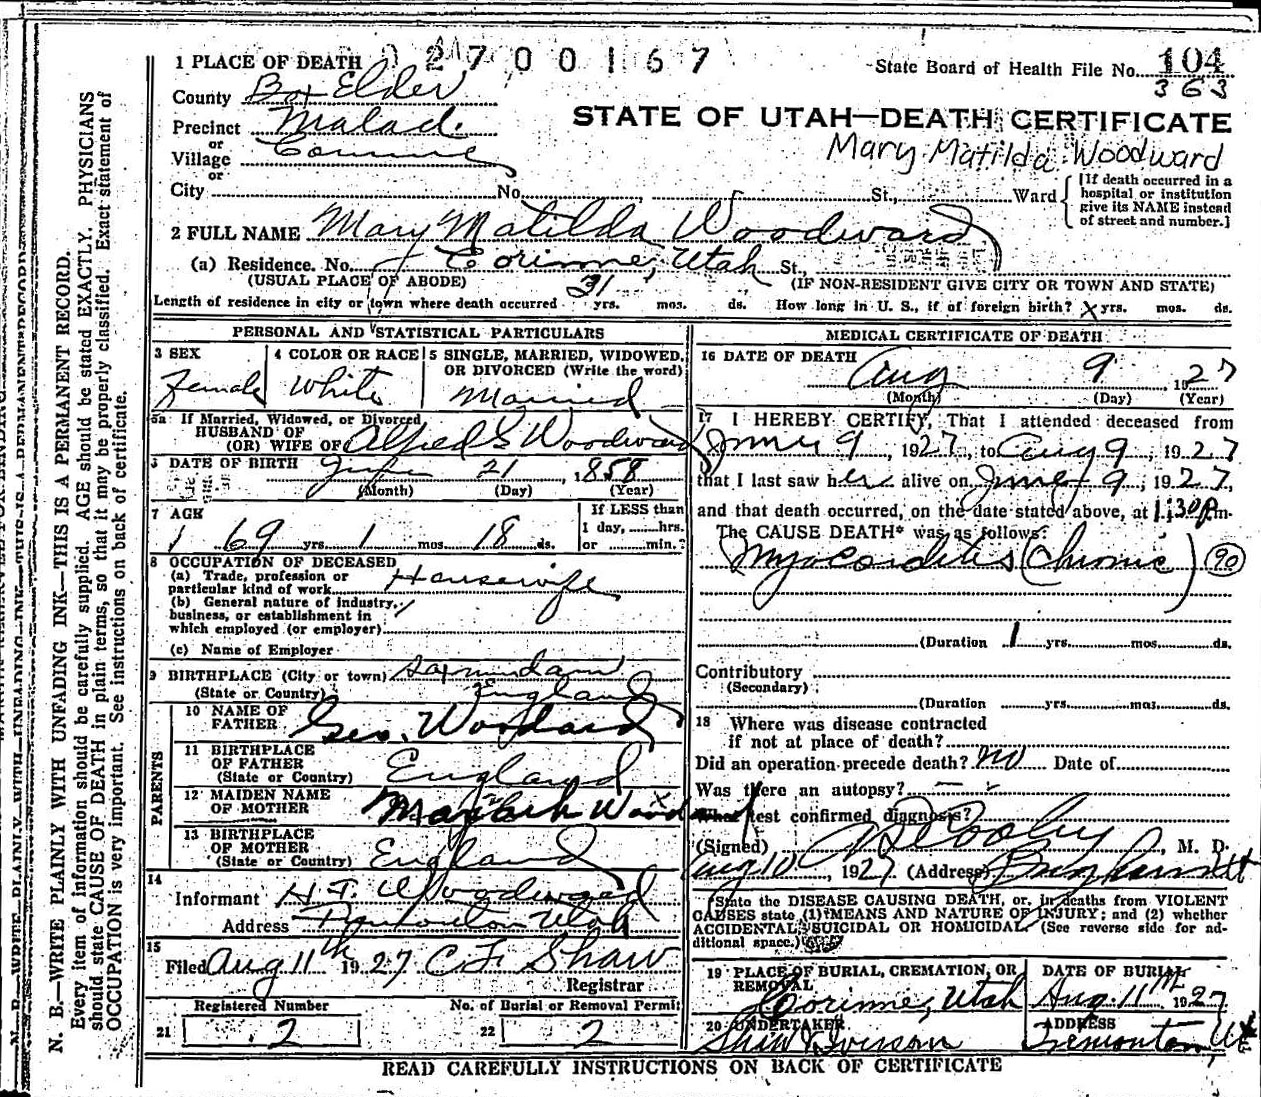 1 PLACE OF DEATH 2700167
State Board of Health File No. 104
363
County Box Elder
STATE OF UTAH—DEATH CERTIFICATE
Precinct Malad
Mary Matilda Woodward
or
Village Corinne
or
City No. St., Ward
[If death occurred in a
hospital or institution
give its NAME instead
of street and number.]
2 FULL NAME Mary Matilda Woodward
(a) Residence. No. Corinne, Utah St.,
(USUAL PLACE OF ABODE) (IF NON-RESIDENT GIVE CITY OR TOWN AND STATE)
Length of residence in city or town where death occurred 31 yrs. mos. ds. How long in U. S., if of foreign birth? x yrs. mos. ds.
PERSONAL AND STATISTICAL PARTICULARS
3 SEX Female
4 COLOR OR RACE White
5 SINGLE, MARRIED, WIDOWED,
OR DIVORCED (Write the word)
Married
5a If Married, Widowed, or Divorced
HUSBAND OF
(OR) WIFE OF Alfred S Woodward
DATE OF BIRTH 21 1858
(Month) (Day) (Year)
7 AGE
69 yrs. 1 mos. 18 ds.
If LESS than
1 day, hrs.
or min.?
8 OCCUPATION OF DECEASED
(a) Trade, profession or
particular kind of work Housewife
(b) General nature of industry,
business, or establishment in
which employed (or employer)
(c) Name of Employer
9 BIRTHPLACE (City or town) Saxmundam
(State or Country) England
PARENTS
10 NAME OF
FATHER Geo. Woodard
11 BIRTHPLACE
OF FATHER
(State or Country) England
12 MAIDEN NAME
OF MOTHER
13 BIRTHPLACE
OF MOTHER
(State or Country) England
14
Informant H. T. Woodward
Address Tremonton Utah
15
Filed Aug 11th 1927 C F Shaw
Registrar
Registered Number
21 2
No. of Burial or Removal Permit
22 2
MEDICAL CERTIFICATE OF DEATH
16 DATE OF DEATH
Aug 9, 1927
(Month) (Day) (Year)
17 I HEREBY CERTIFY, That I attended deceased from
9, 1927, to Aug 9, 1927
that I last saw her alive on 9, 1927,
and that death occurred, on the date stated above, at 1:30 p.m.
The CAUSE DEATH* was as follows:
Myocarditis (Chronic) 90
(Duration 1 yrs. mos. ds.
Contributory
(Secondary)
(Duration yrs. mos. ds.
18 Where was disease contracted
if not at place of death?
Did an operation precede death? no Date of
Was there an autopsy?
What test confirmed diagnosis?
(Signed) , M. D.
Aug 10, 1927 (Address)
*State the DISEASE CAUSING DEATH, or, in deaths from VIOLENT
CAUSES state (1) MEANS AND NATURE OF INJURY; and (2) whether
ACCIDENTAL, SUICIDAL OR HOMICIDAL. (See reverse side for ad-
ditional space.)
19 PLACE OF BURIAL, CREMATION, OR
REMOVAL
Corinne, Utah
DATE OF BURIAL
Aug. 11th 1927
20 UNDERTAKER
Shaw & Iverson
ADDRESS
Tremonton, Ut
READ CAREFULLY INSTRUCTIONS ON BACK OF CERTIFICATE
N. B.—WRITE PLAINLY WITH UNFADING INK—THIS IS A PERMANENT RECORD.
Every item of information should be carefully supplied. AGE should be stated EXACTLY. PHYSICIANS
should state CAUSE OF DEATH in plain terms, so that it may be properly classified. Exact statement of
OCCUPATION is very important. See instructions on back of certificate.